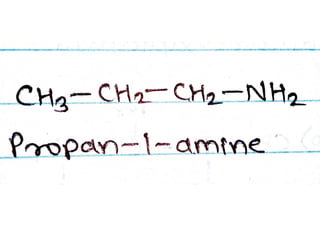 CH₃–CH₂–CH₂–NH₂
Propan–1–amine